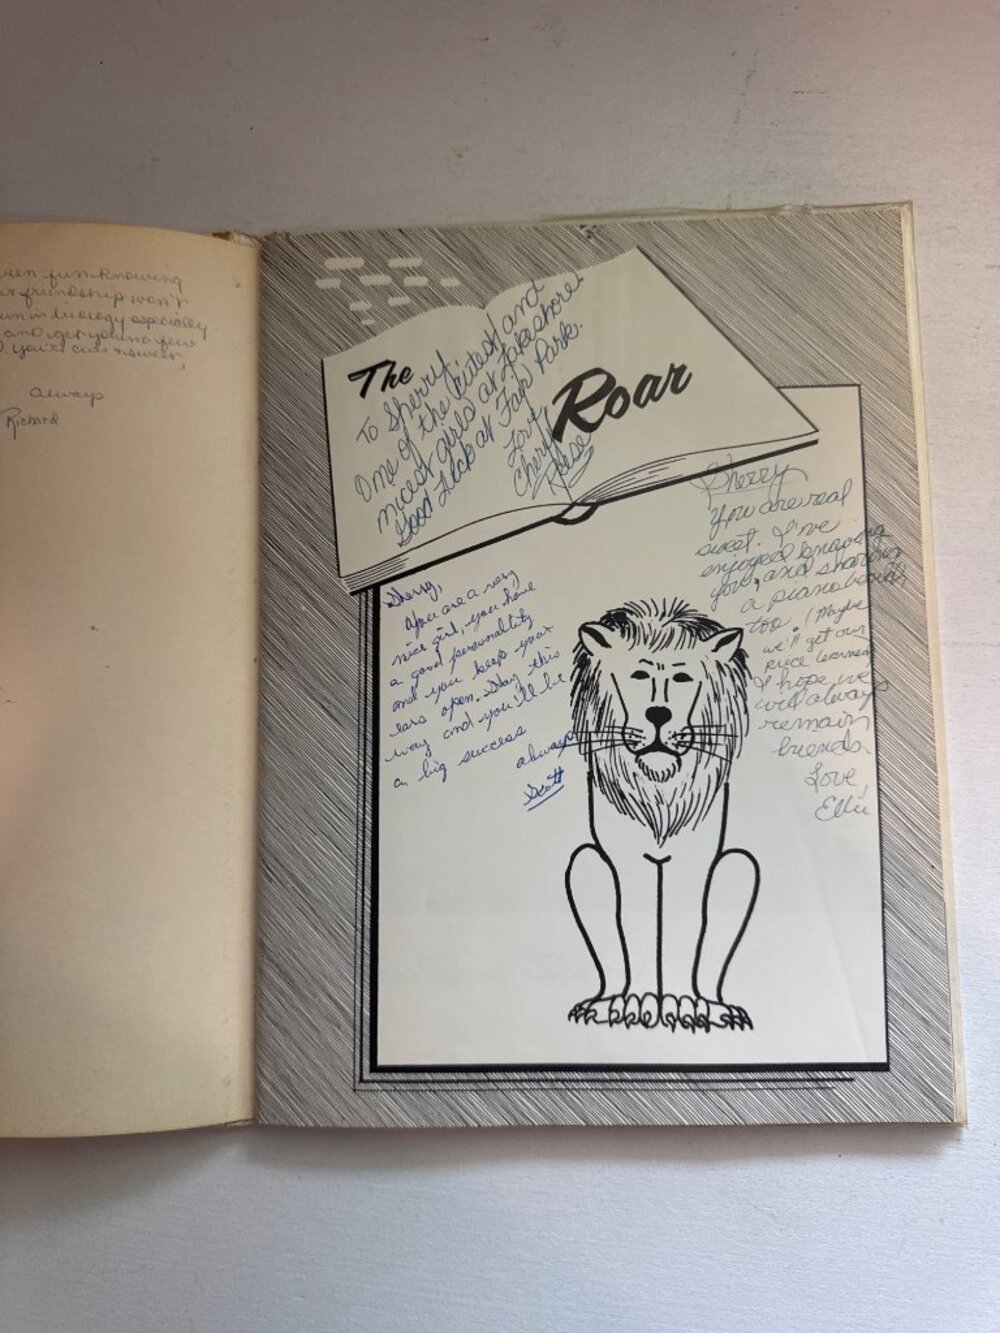 fun knowing
friendship won't
in biology especially
and get
you're cute & sweet,
always
Richard
The Roar
To Sherry
One of the cutest and
nicest girls at Lakeshore.
Good Luck at Fair Park.
Love
Cheryl
Sherry,
You are a very
nice girl, you have
a good personality
and you keep your
ears open. Stay this
way and you'll be
a big success
always
Scott
Sherry
You are real
sweet. I've
enjoyed knowing
you, and sharing
a piano bench
too. (Maybe
we'll get our
piece learned
I hope we
will always
remain
friends.
Love,
Ellie